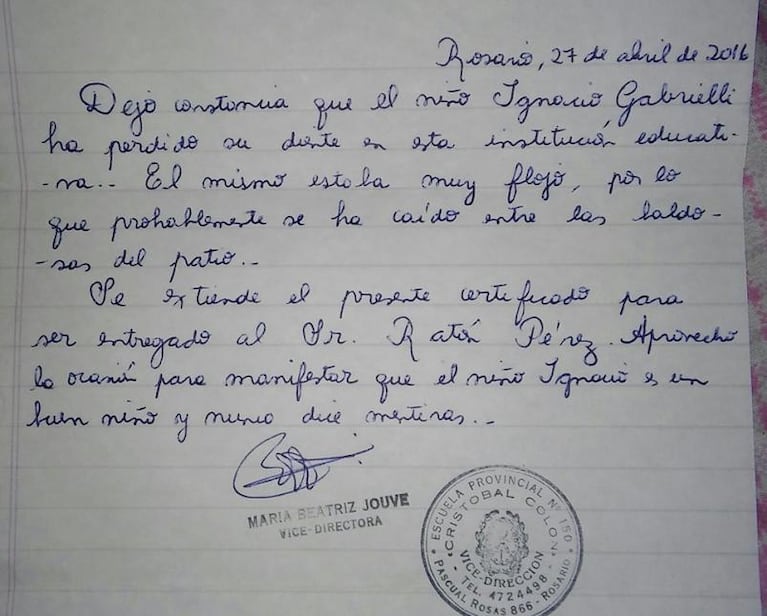 Rosario, 27 de abril de 2016
Dejo constancia que el niño Ignacio Gabrielli
ha perdido su diente en esta institución educati-
-va.. El mismo estaba muy flojo, por lo
que probablemente se ha caído entre las baldo-
-sas del patio.-
Se extiende el presente certificado para
ser entregado al Sr. Ratón Pérez. Aprovecho
la ocasión para manifestar que el niño Ignacio es un
buen niño y nunca dice mentiras..-
MARIA BEATRIZ JOUVE
VICE-DIRECTORA
ESCUELA PROVINCIAL Nº 150
"CRISTOBAL COLON"
VICE-DIRECCION
- TEL. 4724498 -
PASCUAL ROSAS 866 - ROSARIO